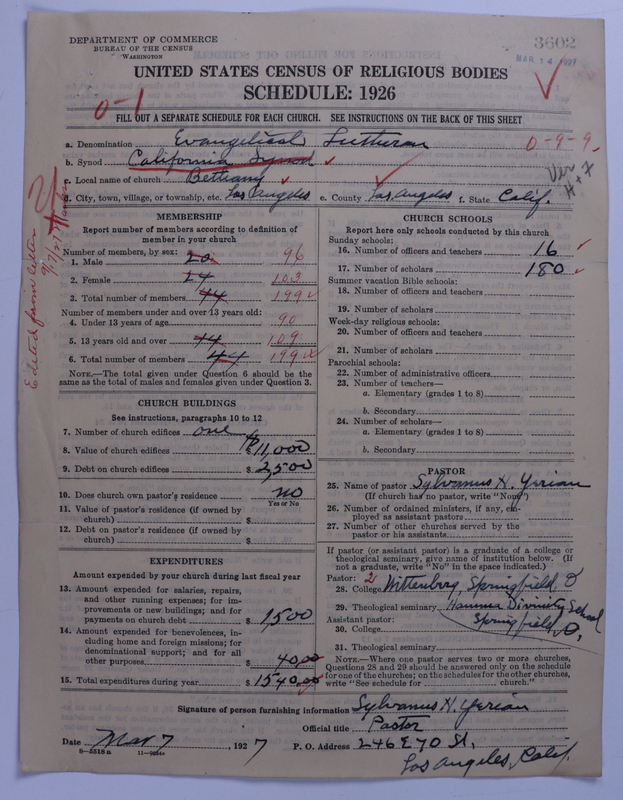 DEPARTMENT OF COMMERCE
BUREAU OF THE CENSUS
WASHINGTON
3602
MAR 14 1927
UNITED STATES CENSUS OF RELIGIOUS BODIES
SCHEDULE: 1926
0-1
FILL OUT A SEPARATE SCHEDULE FOR EACH CHURCH. SEE INSTRUCTIONS ON THE BACK OF THIS SHEET
a. Denomination Evangelical Lutheran 0-9-9
b. Synod California Synod
c. Local name of church Bethany
d. City, town, village, or township, etc. Los Angeles e. County Los Angeles f. State Calif.
Edited from letter
MEMBERSHIP
Report number of members according to definition of
member in your church
Number of members, by sex:
1. Male 20 96
2. Female 24 103
3. Total number of members 44 199
Number of members under and over 13 years old:
4. Under 13 years of age 90
5. 13 years old and over 44 109
6. Total number of members 44 199
NOTE.—The total given under Question 6 should be the
same as the total of males and females given under Question 3.
CHURCH BUILDINGS
See instructions, paragraphs 10 to 12
7. Number of church edifices one
8. Value of church edifices $11,000
9. Debt on church edifices $ 2,500
10. Does church own pastor's residence no
Yes or No
11. Value of pastor's residence (if owned by
church) $
12. Debt on pastor's residence (if owned by
church) $
EXPENDITURES
Amount expended by your church during last fiscal year
13. Amount expended for salaries, repairs,
and other running expenses; for im-
provements or new buildings; and for
payments on church debt $ 1500
14. Amount expended for benevolences, in-
cluding home and foreign missions; for
denominational support; and for all
other purposes $ 40.00
15. Total expenditures during year $ 1540.00
CHURCH SCHOOLS
Report here only schools conducted by this church
Sunday schools:
16. Number of officers and teachers 16
17. Number of scholars 180
Summer vacation Bible schools:
18. Number of officers and teachers
19. Number of scholars
Week-day religious schools:
20. Number of officers and teachers
21. Number of scholars
Parochial schools:
22. Number of administrative officers
23. Number of teachers—
a. Elementary (grades 1 to 8)
b. Secondary
24. Number of scholars—
a. Elementary (grades 1 to 8)
b. Secondary
PASTOR
25. Name of pastor Sylvanus H. Yerian
(If church has no pastor, write "None")
26. Number of ordained ministers, if any, em-
ployed as assistant pastors
27. Number of other churches served by the
pastor or his assistants
If pastor (or assistant pastor) is a graduate of a college or
theological seminary, give name of institution below. (If
not a graduate, write "No" in the space indicated.)
Pastor: 2
28. College Wittenberg, Springfield O
29. Theological seminary Hamma Divinity School
Assistant pastor: Springfield O.
30. College
31. Theological seminary
NOTE.—Where one pastor serves two or more churches,
Questions 28 and 29 should be answered only on the schedule
for one of the churches; on the schedules for the other churches,
write "See schedule for church."
Signature of person furnishing information Sylvanus H. Yerian
Official title Pastor
Date Mar 7 1927 P. O. Address 246 E 70 St,
8-5518 a 11-9264a
Los Angeles, Calif.